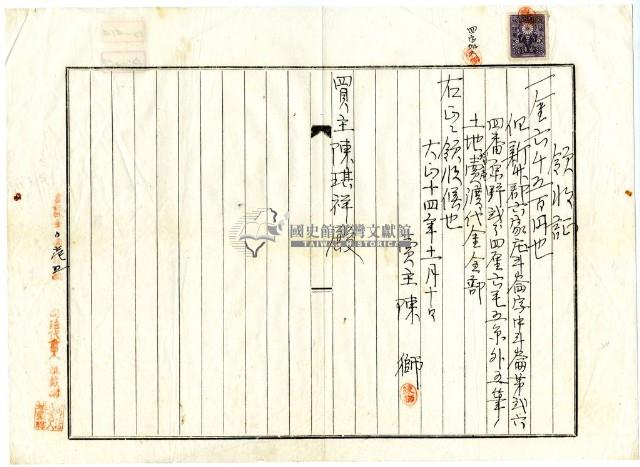 領收証
一金六千五百円也
但新竹郡六家庄斗崙字中斗崙第弐六
四番原野弐分四厘六毛五糸外五筆ノ
土地賣渡代金全部
右正ニ領收候也
大正十四年十一月十日
賣主陳 獅
買主陳琪祥殿
國史館臺灣文獻館
TAIWAN HISTORICA